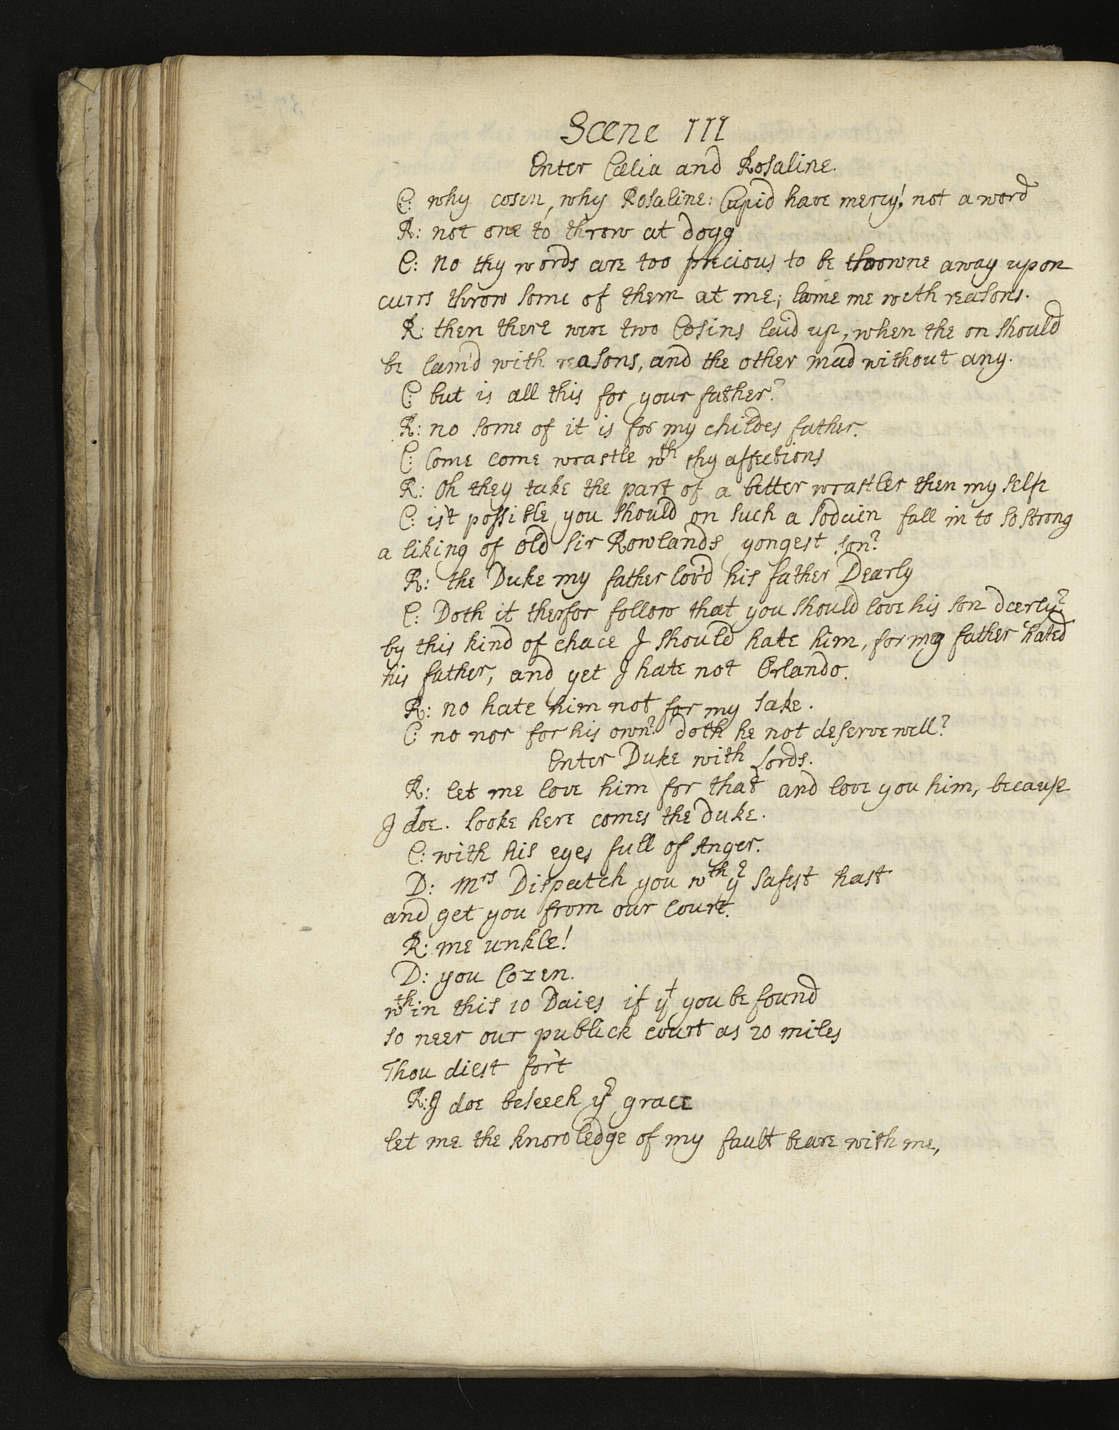 Scene III
Enter Cælia and Rosaline.
C: why cosen, why Rosaline: Cupid have mercy! not a word
R: not one to throw at dogg
C: No thy words are too precious to be throwne away upon
currs throw some of them at me; lame me with reasons.
R: then there were two Cosins laid up, when the on should
be lam'd with reasons, and the other mad without any.
C: but is all this for your father?
R: no some of it is for my childes father.
C: Come come wrastle wth thy affections
R: Oh they take the part of a better wrastler then my self
C: is't possible you should on such a sodain fall in to so strong
a liking of old Sir Rowlands yongest son?
R: the Duke my father lov'd his father Dearly
C: Doth it therfor follow that you should love his son deerly?
by this kind of chace I should hate him, for my father hated
his father, and yet I hate not Orlando.
R: no hate him not for my sake.
C: no nor for his own? doth he not deserve well?
Enter Duke with Lords.
R: let me love him for that and love you him, because
I doe. looke here comes the duke.
C: with his eyes full of Anger.
D: Mrs Dispatch you wth yr safest hast
and get you from our Court.
R: me unkle!
D: you Cozen.
wthin this 10 Daies if yt you be found
so neer our publick court as 20 miles
Thou diest for't
R: I doe beseech yr grace
let me the knowledge of my fault beare with me,